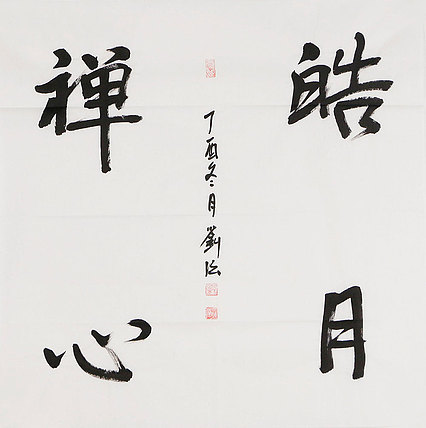 皓月
禅心
丁酉冬月劉